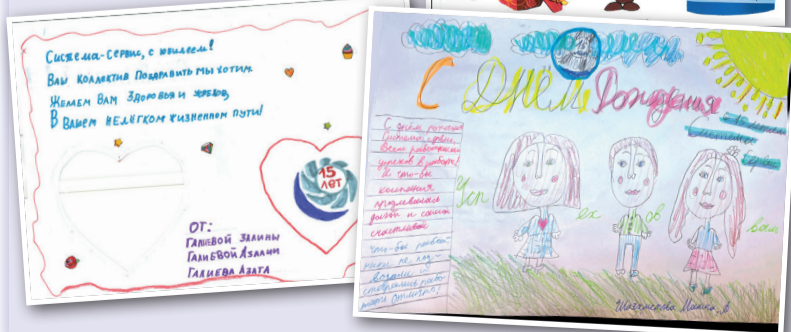 Система-Сервис, с юбилеем!
Ваш коллектив поздравить мы хотим.
Желаем Вам здоровья и
В Вашем нелёгком жизненном пути!
15
ЛЕТ
ОТ:
ГАЛИЕВОЙ ЗАЛИНЫ
ГАЛИЕВОЙ АЗАЛИИ
ГАЛИЕВА АЗАТА
С Днём Рождения
С днём рождения
Система сервис,
Всем работникам
успехов в работе!
А что-бы
компания
продумывалась
и самой
счастливой
Что-бы работ
ники не
и
старались рабо-
тать отлично!
Усп ех ов вам